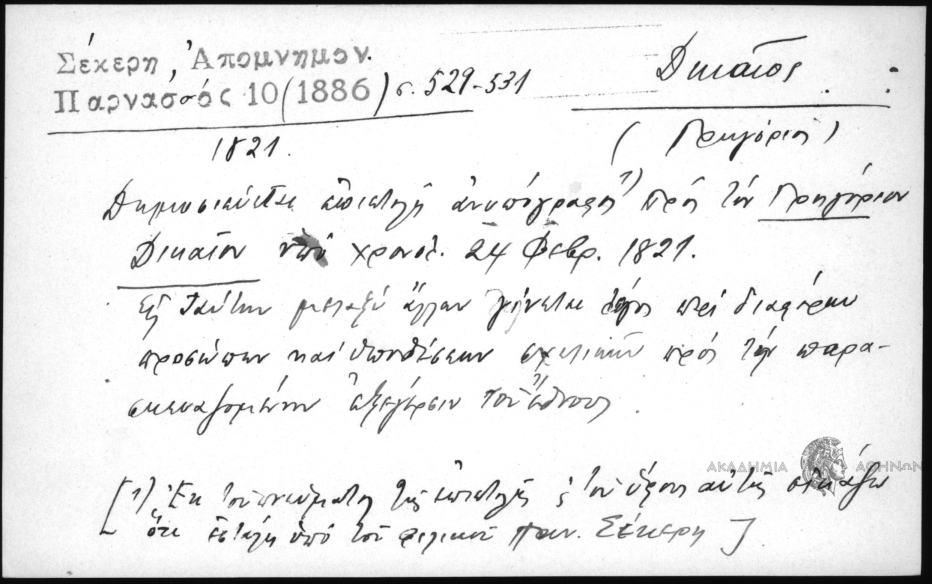 Σέκερη, Ἀπομνημον.
Παρνασσός 10 (1886) σ. 529-531
Δικαῖος
1821.
(Γρηγόριος)
Δημοσιεύεται ἐπιστολὴ ἀνυπόγραφος 1) πρὸς τὸν Γρηγόριον
Δικαῖον ὑπὸ χρονολ. 24 Φεβρ. 1821.
Εἰς ταύτην μεταξὺ ἄλλων γίνεται λόγος περὶ διαφόρων
προσώπων καὶ ὑποθέσεων σχετικῶν πρὸς τὴν παρα-
σκευαζομένην ἐξέγερσιν τοῦ ἔθνους.
[1) Ἐκ τοῦ πνεύματος τῆς ἐπιστολῆς ς τοῦ ὕφους αὐτῆς εἰκάζω
ὅτι ἐστάλη ὑπὸ τοῦ φιλικοῦ Παν. Σέκερη]
ΑΚΑΔΗΜΙΑ ΑΘΗΝΩΝ